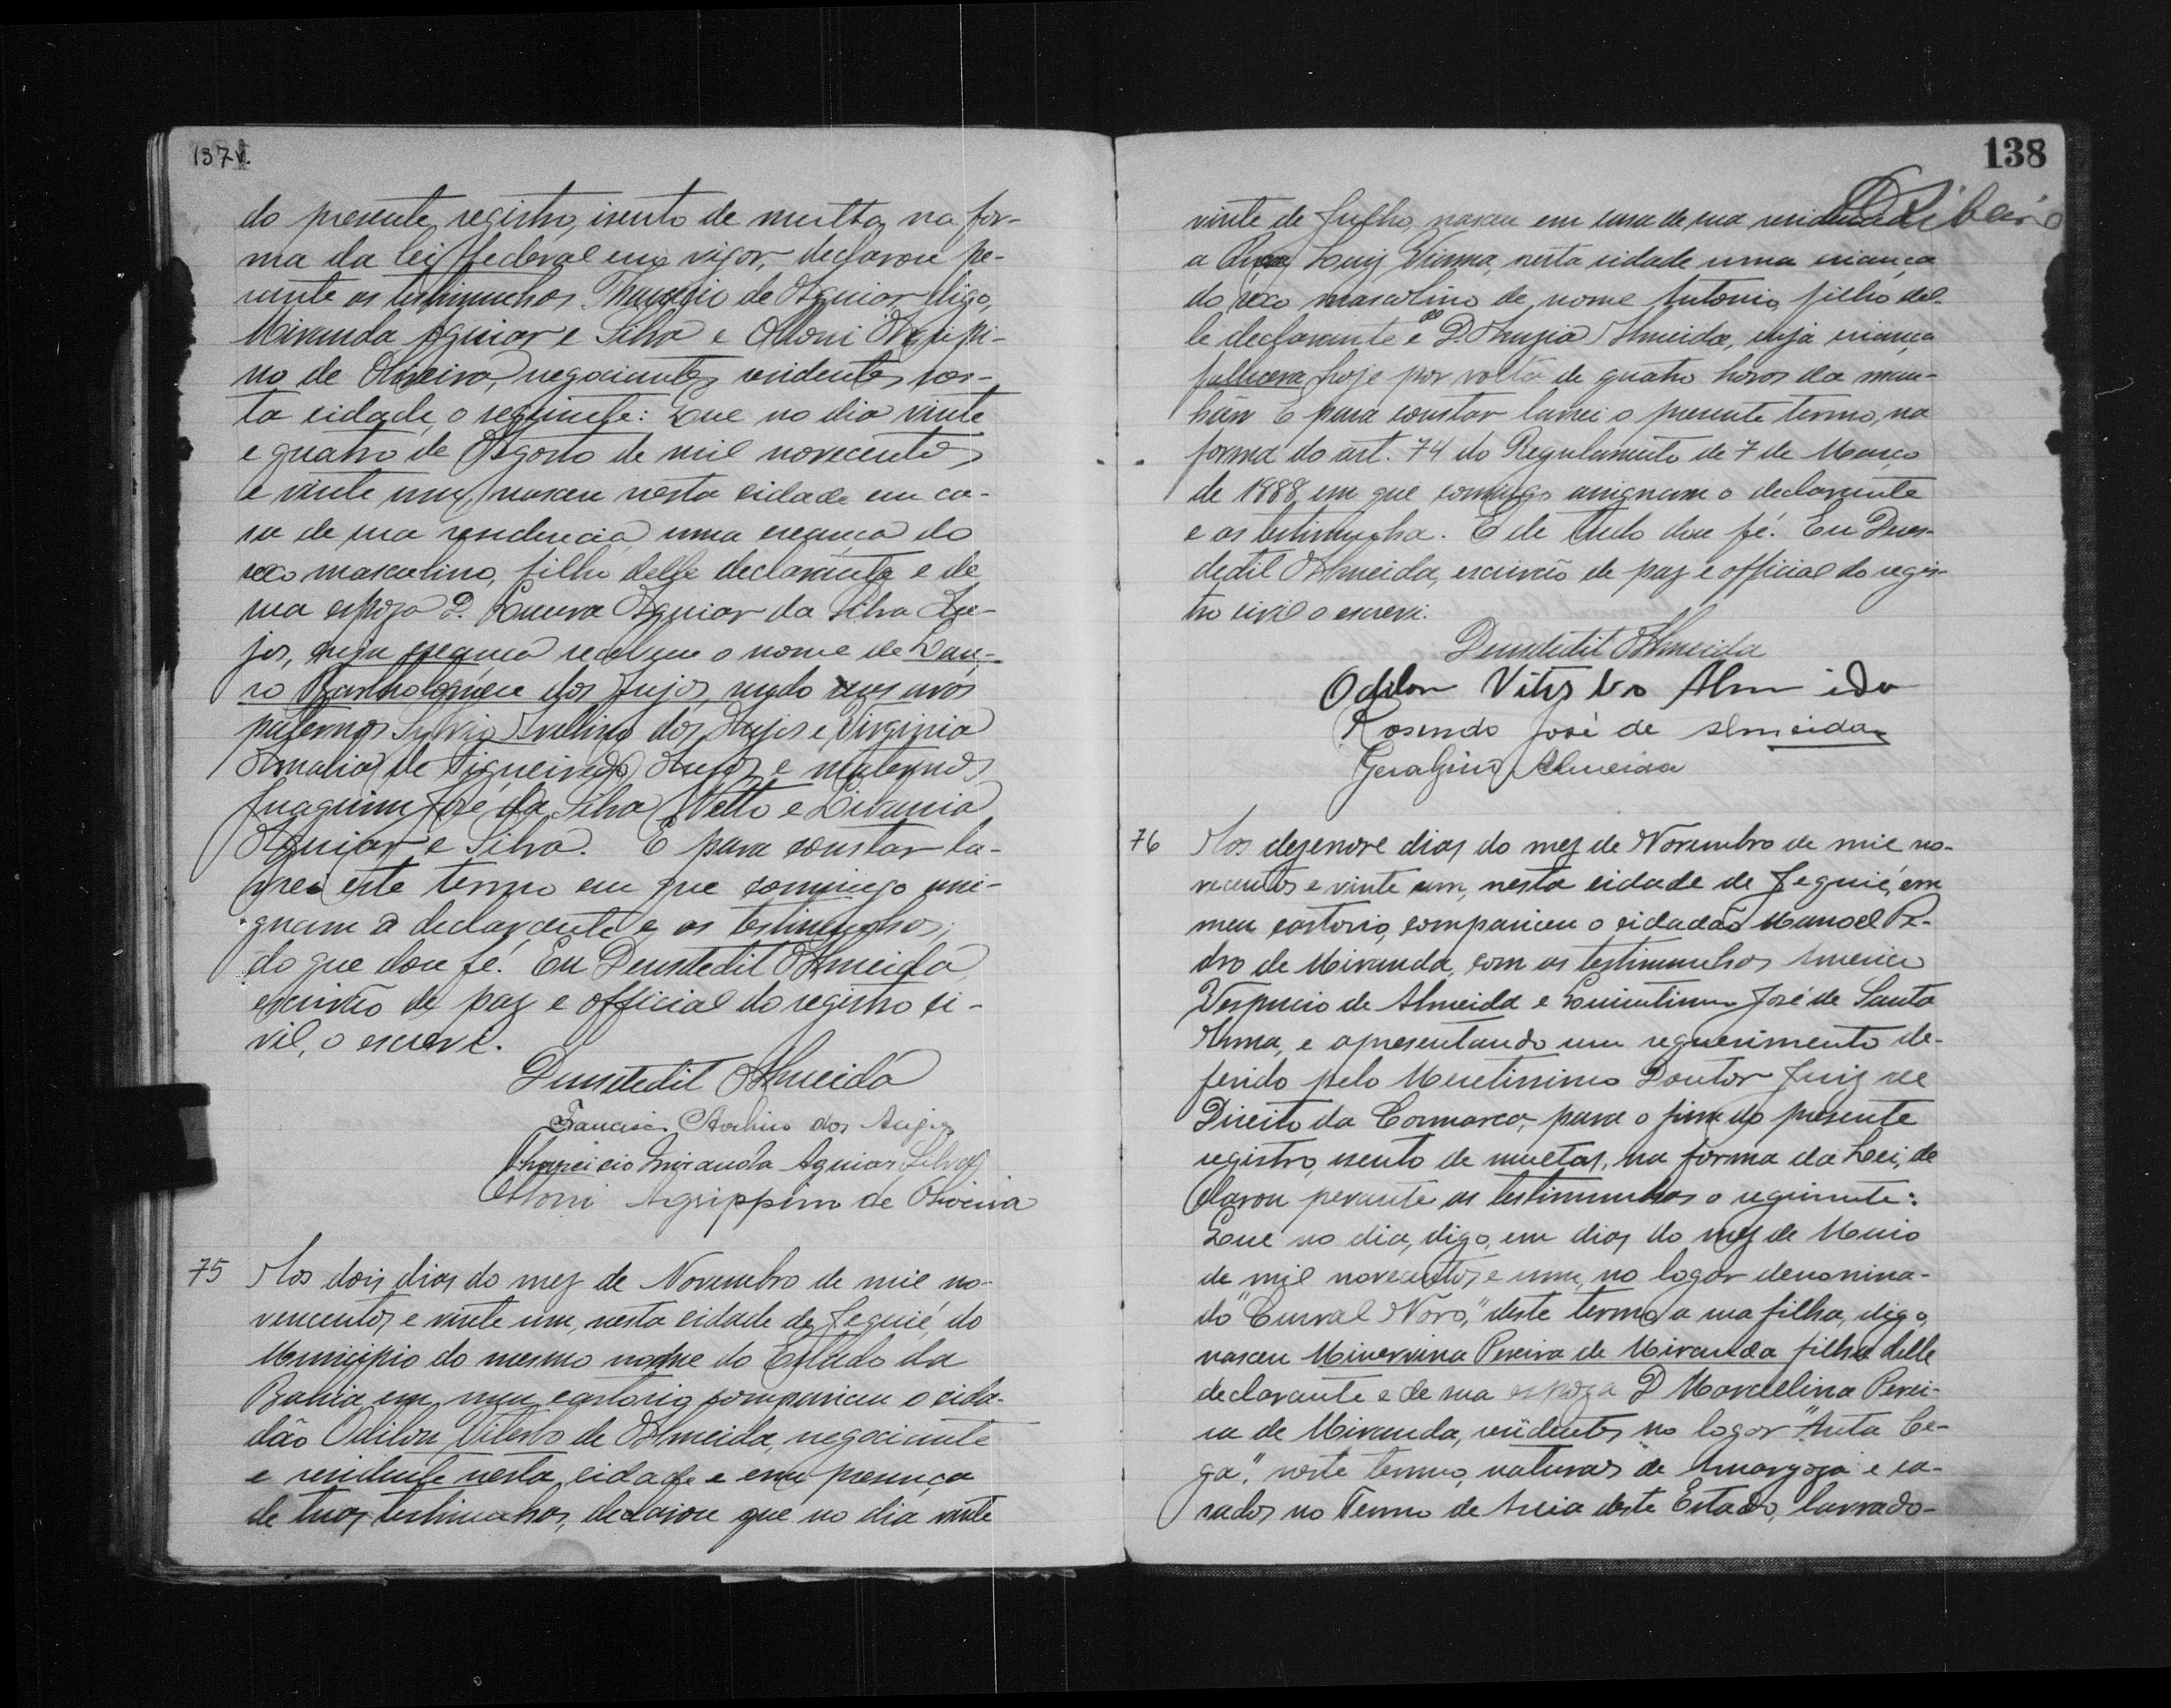 137v.
do presente registro, isento de multa, na for-
ma da lei federal em vigor, declarou pe-
rante as testimunhas Tharcicio de Aguiar digo,
Miranda Aguiar e Silva e Ottoni Agripi-
no de Oliveira, negociantes residentes nes-
ta cidade, o seguinte: Que no dia vinte
e quatro de Agosto de mil novecentos
e vinte um, nasceu nesta cidade em ca-
sa de sua residencia uma creança do
sexo masculino, filho delle declarante e de
sua espoza D. Aguiar da Silva An-
jos, cuja creança recebeu o nome de Lau-
ro Bartholomeu dos Anjos, sendo seus avós
paternos Sylvio Avelino dos Anjos e Virginia
Amalia de Figueiredo Anjos e maternos
Joaquim José da Silva Netto e Libania
Aguiar e Silva. E para constar la-
vrei este termo em que commigo assi-
gnam o declarante e as testimunhas;
do que dou fé. Eu Deusdedit Almeida
escrivão de paz e official do registro ci-
vil, o escrevi.
Deusdedit Almeida
Francisco dos Anjos
Tharcicio Miranda Aguiar Silva
Ottoni Agrippino de Oliveira
75 Aos dois dias do mez de Novembro de mil no-
vencentos e vinte um, nesta cidade de Jequié, do
Municipio do mesmo nome do Estado da
Bahia em meu cartorio compareceu o cida-
dão Odilon Viterbo de Almeida, negociante
e residente nesta cidade e em presença
de duas testimunhas, declarou que no dia vinte
138
Ribeiro
vinte de Julho, nasceu em casa de sua residencia
a Rua Luiz Vianna, nesta cidade uma criança
do sexo masculino de nome Antonio, filho del-
le declarante e de D. Luzia Almeida, cuja criança
fallecera hoje por volta de quatro horas da man-
hãn E para constar lavrei o presente termo, na
forma do art. 74 do Regulamento de 7 de Março
de 1888 em que commigo assignam o declarante
e as testimunha. E de tudo dou fé. Eu Deus-
dedit Almeida, escrivão de paz e official do regis-
tro civil o escrevi.
Deusdedit Almeida
Odilon Viterbo Almeida
Rosendo José de Almeida
Almeida
76 Aos dezenove dias do mez de Novembro de mil no-
vecentos e vinte um, nesta cidade de Jequié, em
meu cartorio, compareceu o cidadão Manoel Pe-
dro de Miranda, com as testimunhas Americo
Vespucio de Almeida e Quintiliano José de Santa
Anna, e apresentando um requerimento de-
ferido pelo Meretissimo Doutor Juiz de
Direito da Comarca, para o fim do presente
registro, isento de multas, na forma da Lei, de
clarou perante as testimunhas o seguinte:
Que no dia, digo, em dias do mez de Maio
de mil novecentos e um, no logar denomina-
do "Curral Novo," deste termo a sua filha, digo,
nasceu Minervina Pereira de Miranda filha delle
declarante e de sua espoza D Marcelina Perei-
ra de Miranda, residentes no logar "Anta Ce-
ga", neste termo, naturaes de Amargoza e ca-
sados no Termo de Areia deste Estado, lavrado-